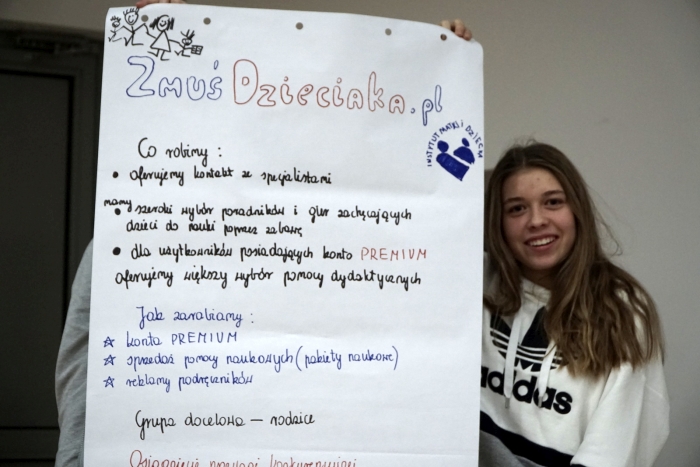 ZMUŚ DZIECIAKA.pl
INSTYTUT MATKI I DZIECKA
Co robimy :
• oferujemy kontakt ze specjalistami
mamy
• szeroki wybór poradników i gier zachęcających
dzieci do nauki poprzez zabawę
• dla użytkowników posiadających konto PREMIUM
oferujemy większy wybór pomocy dydaktycznych
Jak zarabiamy :
☆ konta PREMIUM
☆ sprzedaż pomocy naukowych (pakiety naukowe)
☆ reklamy podręczników
Grupa docelowa — rodzice
Osiągnięcie przewagi konkurencyjnej
adidas